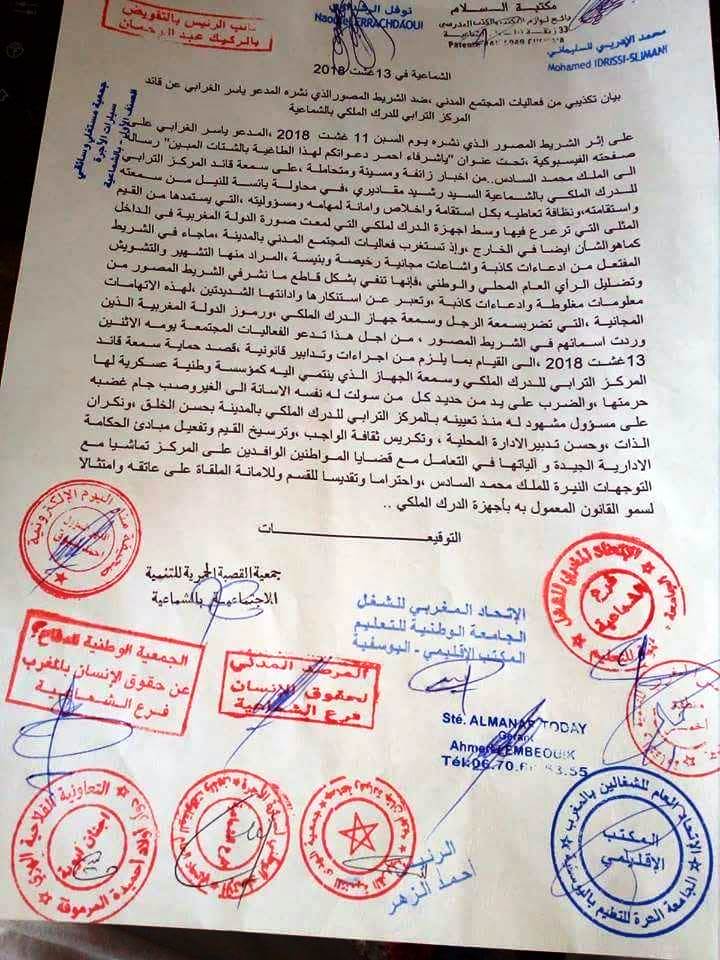 نائب الرئيس بالتفويض
بالركيك عبد الرحمان
نوفل الرشداوي
Naoufel ERRACHDAOUI
مكتبة السلام
محمد الإدريسي السليماني
Mohamed IDRISSI-SLIMANI
جمعية مستغلي وسائقي
سيارات الأجرة
الصنف الأول - بالشماعية
الشماعية في 13 غشت 2018
بيان تكذيبي من فعاليات المجتمع المدني ،ضد الشريط المصورالذي نشره المدعو ياسر الغرابي عن قائد
المركز الترابي للدرك الملكي بالشماعية
على إثر الشريط المصور الذي نشره يوم السبن 11 غشت 2018 ،المدعو ياسر الغرابي على
صفحته الفيسبوكية ،تحت عنوان "ياشرفاء احمر دعواتكم لهذا الطاغية بالشتات المبين" رسالة
الى الملك محمد السادس..من اخبار زائفة ومسيئة ومتحاملة ،على سمعة قائد المركز الترابي
للدرك الملكي بالشماعية السيد رشيد مقاديري ،في محاولة يائسة للنيل من سمعته
واستقامته،ونظافة تعاطيه بكل استقامة واخلاص وامانة لمهامه ومسؤوليته ،التي يستمدها من القيم
المثلى التي ترعرع فيها وسط اجهزة الدرك لملكي التي لمعت صورة الدولة المغربية في الداخل
كماهوالشأن ايضا في الخارج ،وإذ تستغرب فعاليات المجتمع المدني بالمدينة ،ماجاء في الشريط
المفتعل من ادعاءات كاذبة واشاعات مجانية رخيصة وبئيسة ،المراد منها التشهير والتشويش
وتضليل الرأي العام المحلي والوطني ،فإنها تنفي بشكل قاطع ما نشرفي الشريط المصور من
معلومات مغلوطة وادعاءات كاذبة ،وتعبر عن استنكارها وادانتها الشديدتين ،لهذه الاتهامات
المجانية ،التي تضربسمعة الرجل وسمعة جهاز الدرك الملكي ،ورموز الدولة المغربية الذين
وردت اسمائهم في الشريط المصور ، من اجل هذا تدعو الفعاليات المجتمعة يومه الاثنين
13غشت 2018 ،الى القيام بما يلزم من اجراءات وتدابير قانونية ،قصد حماية سمعة قائد
المركز الترابي للدرك الملكي وسمعة الجهاز الذي ينتمي اليه كمؤسسة وطنية عسكرية لها
حرمتها ،والضرب على يد من حديد كل من سولت له نفسه الاسانة الى الغيروصب جام غضبه
على مسؤول مشهود له منذ تعيينه بالمركز الترابي للدرك الملكي بالمدينة بحسن الخلق ،ونكران
الذات ،وحسن تدبيرالادارة المحلية ، وتكريس ثقافة الواجب ،وترسيخ القيم وتفعيل مبادئ الحكامة
الادارية الجيدة و آلياتها في التعامل مع قضايا المواطنين الوافدين على المركز تماشيا مع
التوجهات النيرة للملك محمد السادس ،واحتراما وتقديسا للقسم وللامانة الملقاة على عاتقه وامتثالا
لسمو القانون المعمول به بأجهزة الدرك الملكي ..
التوقيعــــــــــــات
جمعية القصبة الحمرية للتنمية
الاجتماعية بالشماعية
الإتحاد المغربي للشغل
الجامعة الوطنية للتعليم
المكتب الإقليمي - اليوسفية
الجمعية الوطنية للدفاع
عن حقوق الإنسان بالمغرب
فرع الشماعية
المرصد المدني
لحقوق الإنسان
فرع الشماعية
Sté. ALMANAR TODAY
Gérant
التعاونية الفلاحية
الرئيس
أحمد الزهر
الاتحاد العام للشغالين بالمغرب
المكتب
الإقليمي
الجامعة الحرة للتعليم باليوسفية